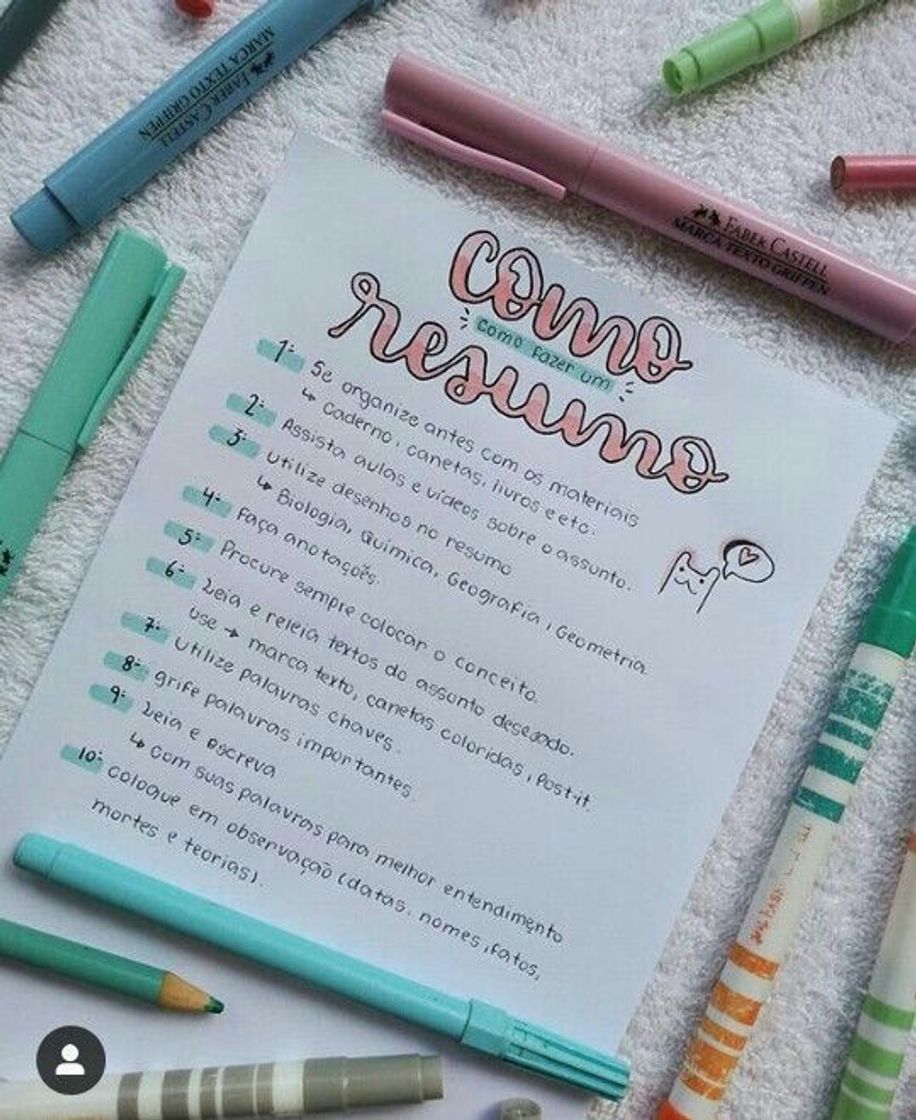 MARCA TEXTO GRIFPEN
FABER CASTELL
FABER CASTELL
MARCA TEXTO GRIFPEN
como
como fazer um
resumo
1- Se organize antes com os materiais
↳ caderno, canetas, livros e etc.
2- Assista aulas e vídeos sobre o assunto.
3- utilize desenhos no resumo
↳ Biologia, Química, Geografia, Geometria.
4- Faça anotações.
5- Procure sempre colocar o conceito.
6- Leia e releia textos do assunto desegado.
use → marca texto, canetas coloridas, Post-it
7- utilize palavras chaves.
8- grife palavras importantes.
9- Leia e escreva
↳ com suas palavras para melhor entendimento
10- coloque em observação (datas, nomes, fatos,
mortes e teorias).